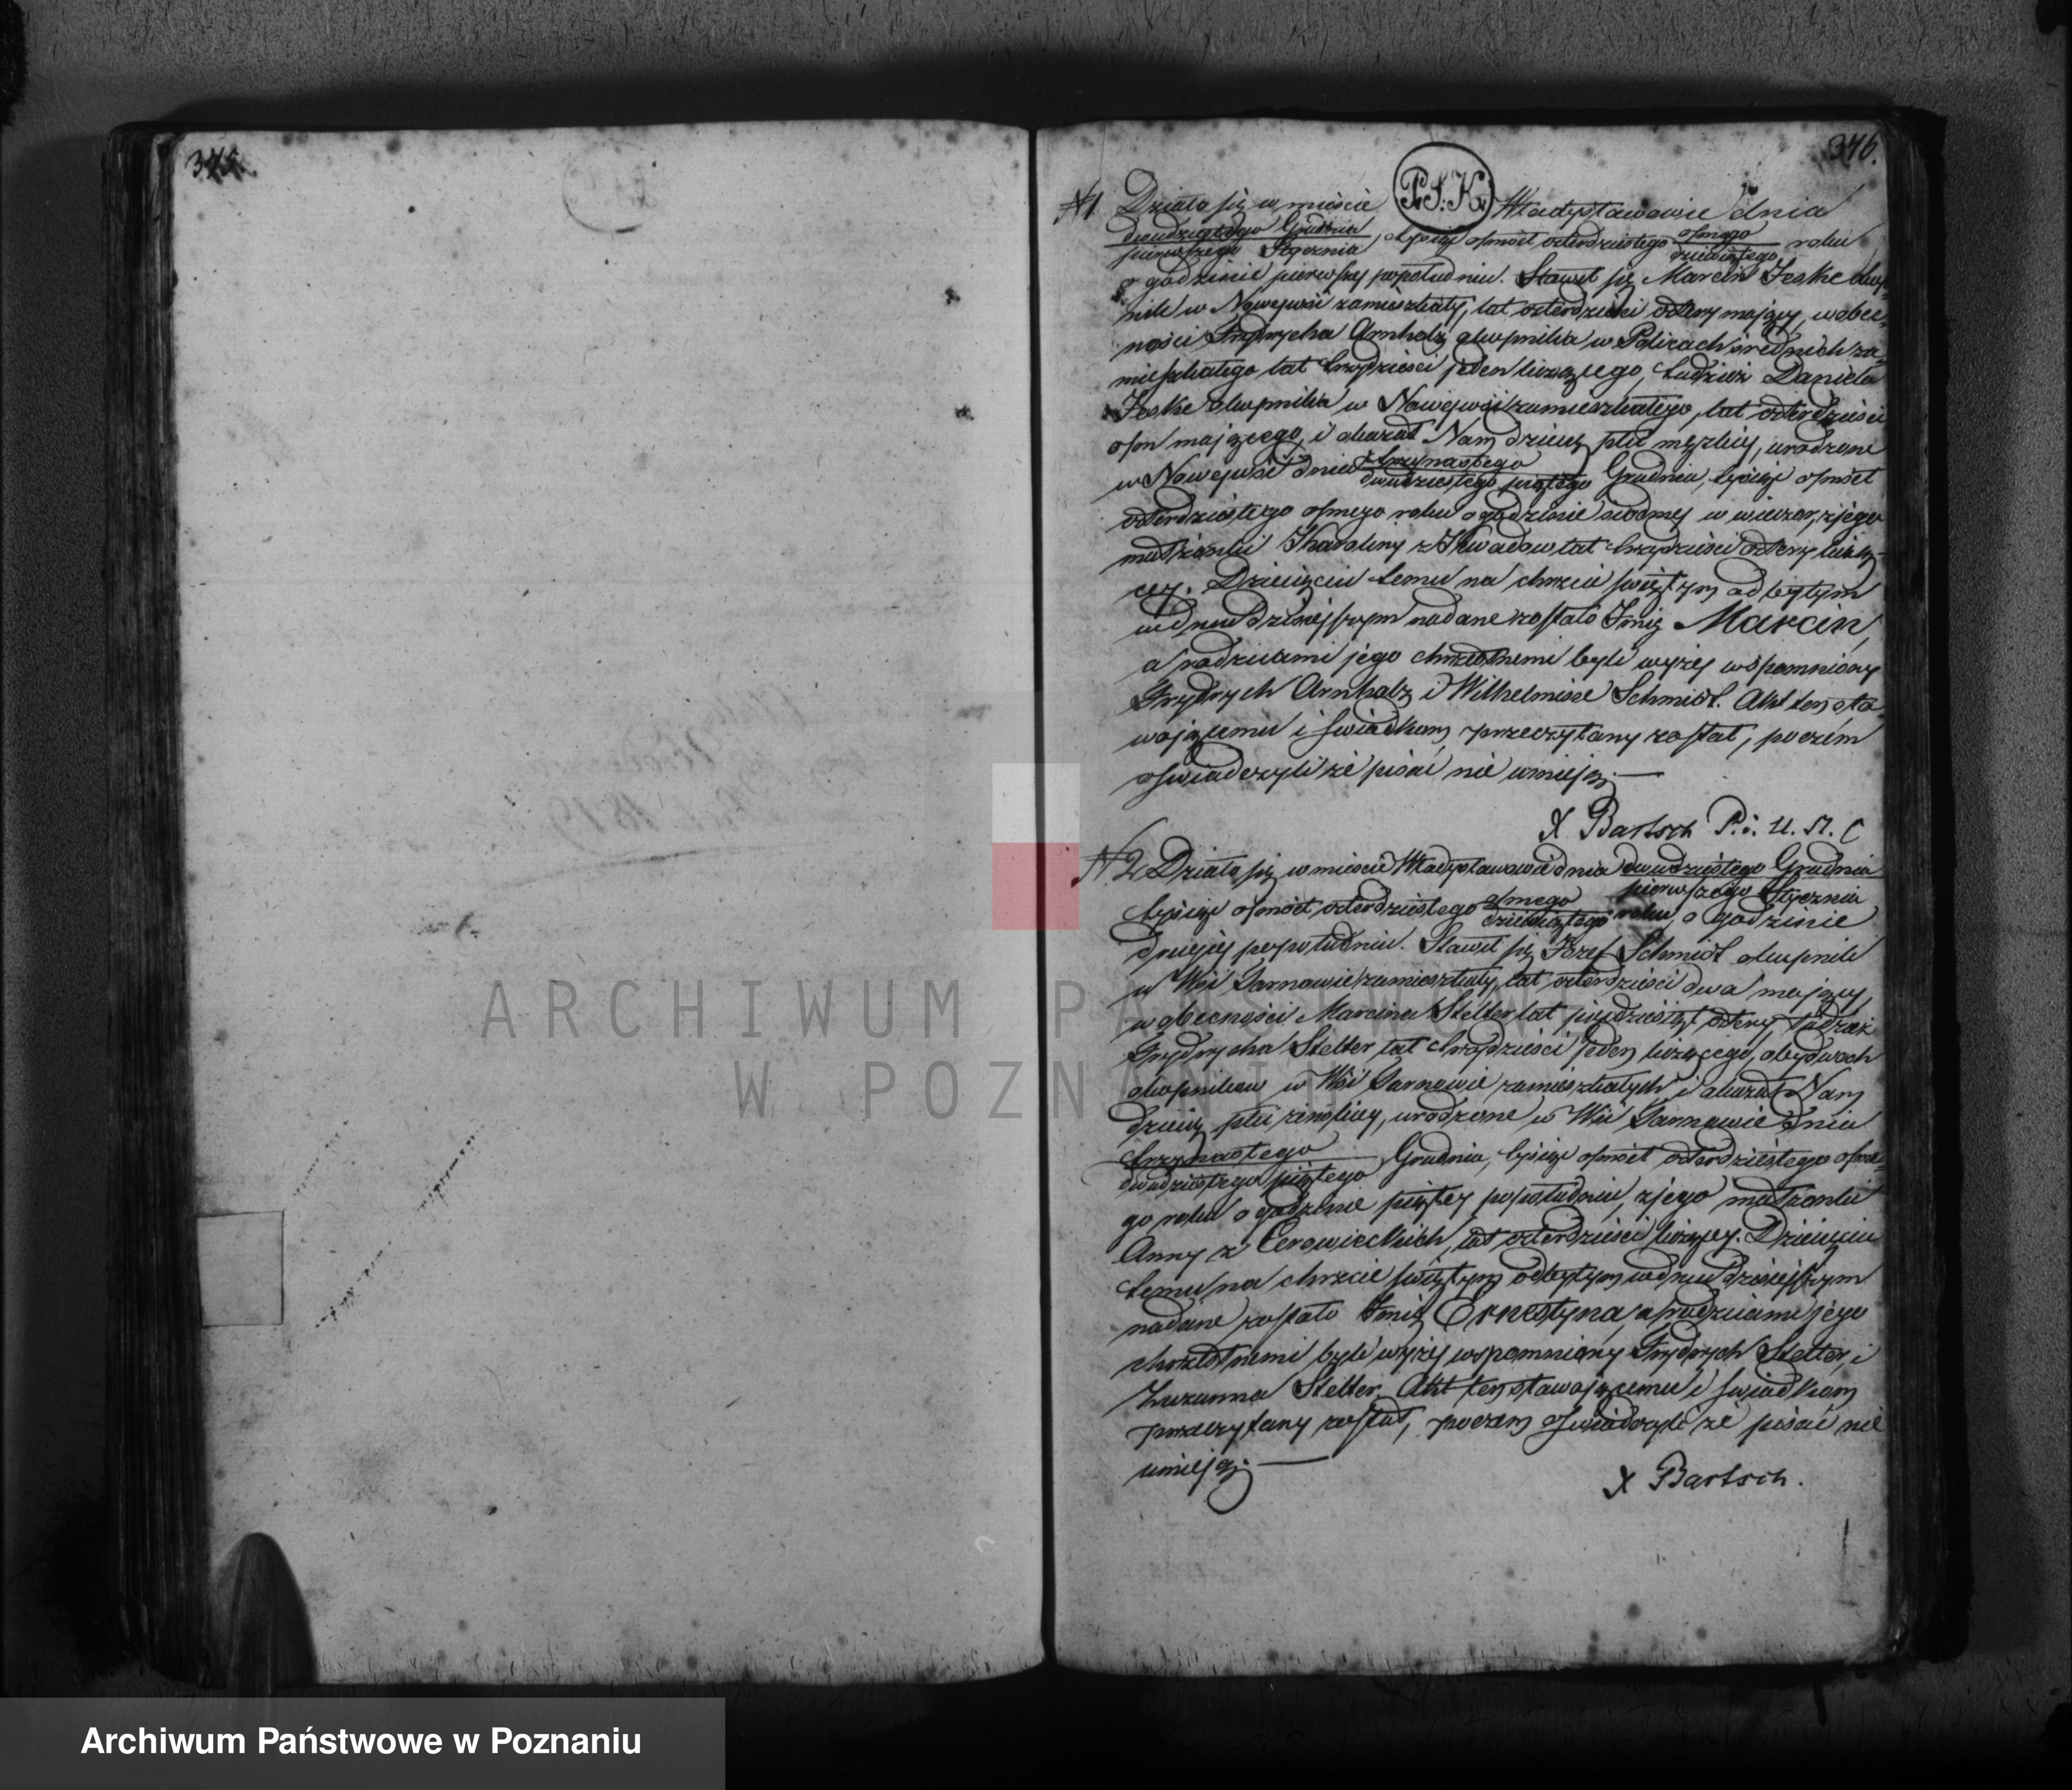 345.
346.
P.S.K.
№ 1 Działo się w mieście Władysławowie dnia
dwudziestego Grudnia
pierwszego Stycznia, tysiąc ośmset czterdziestego ośmego
dziewiątego roku
o godzinie pierwszej popołudniu. Stawił się Marcin Jeske okup-
nik w Nowejwsi zamieszkały, lat czterdzieści cztery mający, w obec-
ności Frydrycha Arnholz okupnika w Policach średnich za-
mieszkałego lat trzydzieści jeden liczącego, tudzież Daniela
Jeske okupnika w Nowejwsi zamieszkałego, lat czterdzieści
ośm mającego, i okazał Nam dziecię płci męzkiej, urodzone
w Nowejwsi dnia trzynastego
dwudziestego piątego Grudnia, tysiąc ośmset
czterdziestego ośmego roku o godzinie siodmej w wieczor, z jego
małżonki Karoliny z lat trzydzieści cztery liczą-
cej. Dziecięciu temu na chrzcie świętym odbytym
w dniu dzisiejszym nadane zostało Imię Marcin,
a rodzicami jego chrzestnemi byli wyżej wspomniony
Frydrych Arnholz i Wilhelmine Schmidt. Akt ten sta-
wającemu i świadkom przeczytany został, poczém
oświadczyli że pisać nie umieją.—
X Bartsch P. i. U. S. C
№ 2 Działo się w mieście Władysławowie dnia dwudziestego Grudnia
pierwszego Stycznia
tysiąc ośmset czterdziestego ośmego
dziewiątego roku, o godzinie
drugiej popołudniu. Stawił się Józef Schmidt okupnik
w Wsi Tarnowie zamieszkały, lat czterdzieści dwa mający,
w obecności Marcina Stelter lat pięćdziesiąt cztery, tudzież
Frydrycha Stelter lat trzydzieści jeden liczącego, obydwoch
okupnikow w Wsi Tarnowie zamieszkałych i okazał Nam
dziecię płci żeńskiej, urodzone w Wsi Tarnowie dnia
trzynastego
dwudziestego piątego Grudnia, tysiąc ośmset czterdziestego ośme-
go roku o godzinie piątej popołudniu, z jego małżonki
Anny z Cerowieckich, lat czterdzieści liczącej. Dziecięciu
temu na chrzcie świętym odbytym w dniu dzisiejszym
nadane zostało Imię Ernestyna, a rodzicami jego
chrzestnemi byli wyżej wspomniony Frydrych Stelter, i
Zuzanna Stelter. Akt ten stawającemu i świadkom
przeczytany został, poczem oświadczyli że pisać nie
umieją.—
X Bartsch.
ARCHIWUM PAŃSTWOWE
W POZNANIU
Archiwum Państwowe w Poznaniu